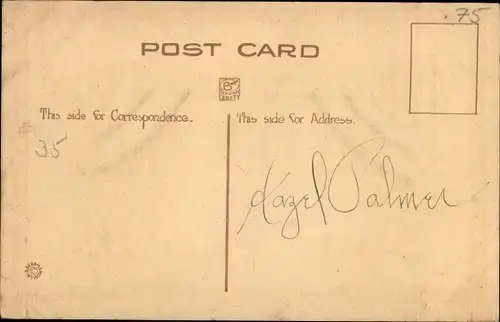 .75
POST CARD
This side for Correspondence.
This side for Address.
35
Hazel Palmer